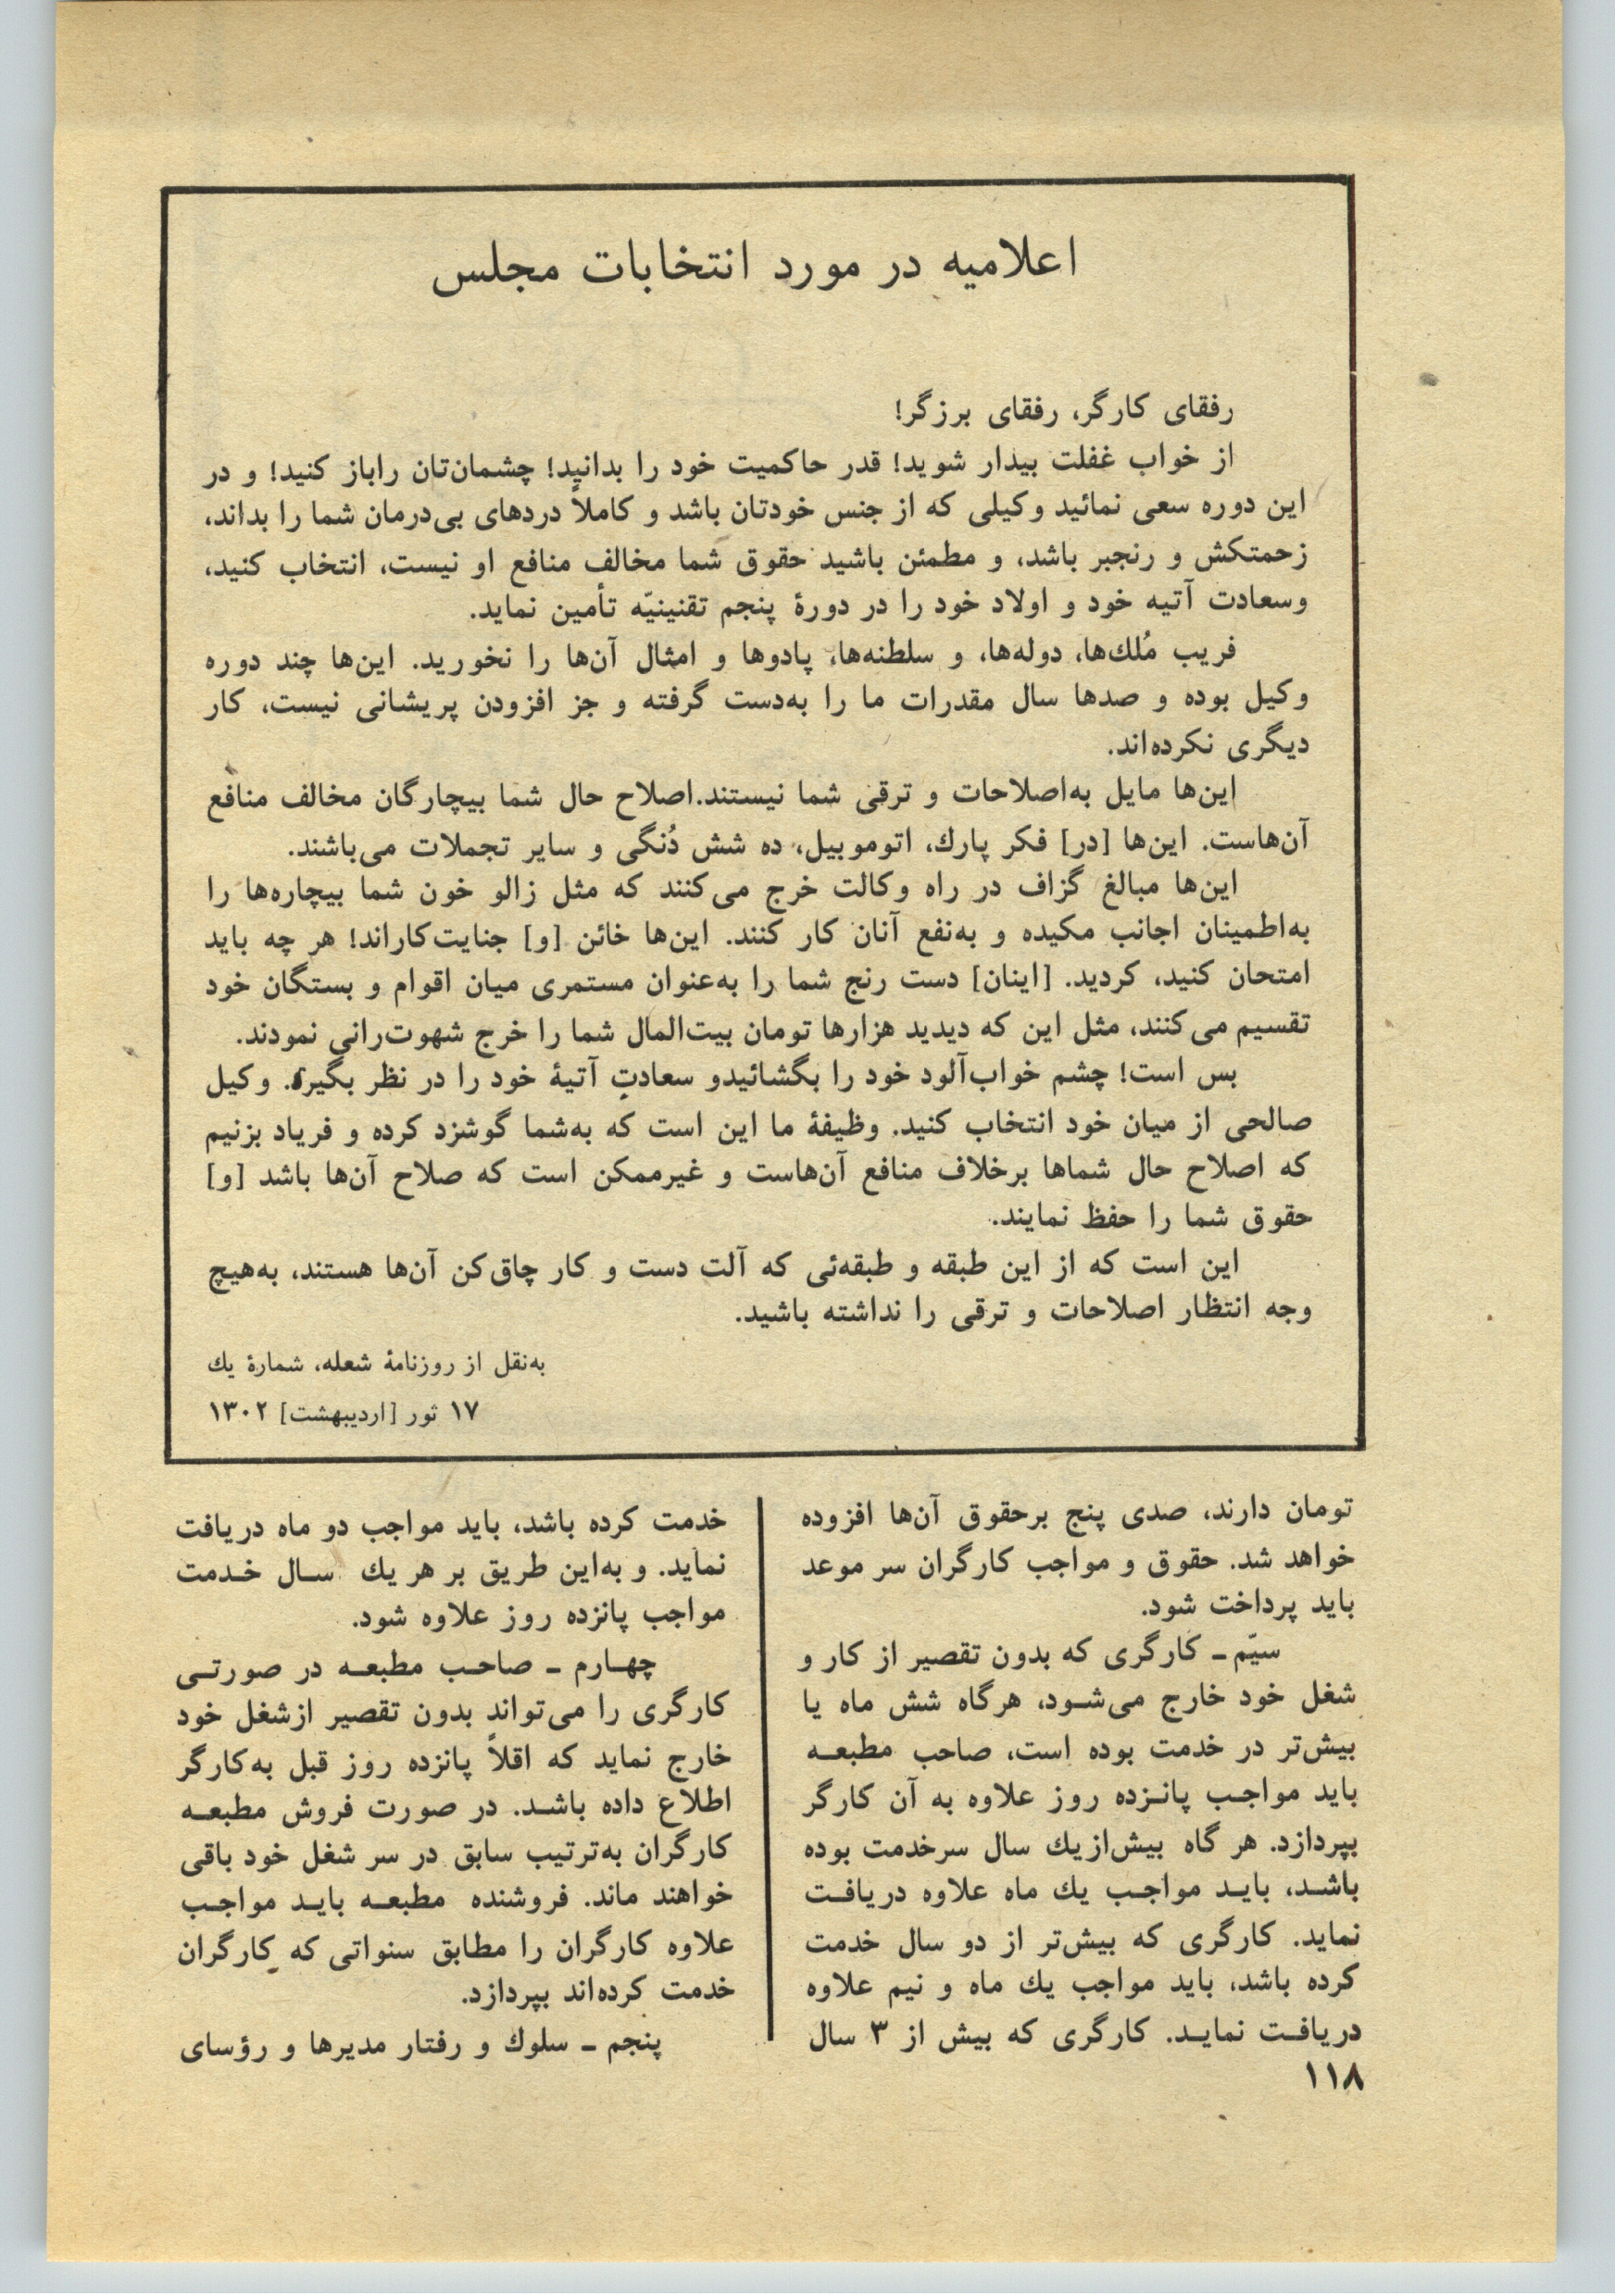 اعلامیه در مورد انتخابات مجلس
رفقای کارگر، رفقای برزگر!
از خواب غفلت بیدار شوید! قدر حاکمیت خود را بدانید! چشمان‌تان راباز کنید! و در
این دوره سعی نمائید وکیلی که از جنس خودتان باشد و کاملاً دردهای بی‌درمان شما را بداند،
زحمتکش و رنجبر باشد، و مطمئن باشید حقوق شما مخالف منافع او نیست، انتخاب کنید،
وسعادت آتیه خود و اولاد خود را در دورهٔ پنجم تقنینیّه تأمین نماید.
فریب مُلك‌ها، دوله‌ها، و سلطنه‌ها، پادوها و امثال آن‌ها را نخورید. این‌ها چند دوره
وکیل بوده و صدها سال مقدرات ما را به‌دست گرفته و جز افزودن پریشانی نیست، کار
دیگری نکرده‌اند.
این‌ها مایل به‌اصلاحات و ترقی شما نیستند.اصلاح حال شما بیچارگان مخالف منافع
آن‌هاست. این‌ها [در] فکر پارك، اتوموبیل، ده شش دُنگی و سایر تجملات می‌باشند.
این‌ها مبالغ گزاف در راه وکالت خرج می‌کنند که مثل زالو خون شما بیچاره‌ها را
به‌اطمینان اجانب مکیده و به‌نفع آنان کار کنند. این‌ها خائن [و] جنایت‌کاراند! هر چه باید
امتحان کنید، کردید. [اینان] دست رنج شما را به‌عنوان مستمری میان اقوام و بستگان خود
تقسیم می‌کنند، مثل این که دیدید هزارها تومان بیت‌المال شما را خرج شهوت‌رانی نمودند.
بس است! چشم خواب‌آلود خود را بگشائیدو سعادتِ آتیهٔ خود را در نظر بگیرید. وکیل
صالحی از میان خود انتخاب کنید. وظیفهٔ ما این است که به‌شما گوشزد کرده و فریاد بزنیم
که اصلاح حال شماها برخلاف منافع آن‌هاست و غیرممکن است که صلاح آن‌ها باشد [و]
حقوق شما را حفظ نمایند.
این است که از این طبقه و طبقه‌ئی که آلت دست و کار چاق‌کن آن‌ها هستند، به‌هیچ
وجه انتظار اصلاحات و ترقی را نداشته باشید.
به‌نقل از روزنامهٔ شعله، شمارهٔ یك
۱۷ ثور [اردیبهشت] ۱۳۰۲
تومان دارند، صدی پنج برحقوق آن‌ها افزوده
خواهد شد. حقوق و مواجب کارگران سر موعد
باید پرداخت شود.
سیّم ـ کارگری که بدون تقصیر از کار و
شغل خود خارج می‌شود، هرگاه شش ماه یا
بیش‌تر در خدمت بوده است، صاحب مطبعه
باید مواجب پانزده روز علاوه به آن کارگر
بپردازد. هر گاه بیش‌ازیك سال سرخدمت بوده
باشد، باید مواجب یك ماه علاوه دریافت
نماید. کارگری که بیش‌تر از دو سال خدمت
کرده باشد، باید مواجب یك ماه و نیم علاوه
دریافت نماید. کارگری که بیش از ۳ سال
خدمت کرده باشد، باید مواجب دو ماه دریافت
نماید. و به‌این طریق بر هر یك سال خدمت
مواجب پانزده روز علاوه شود.
چهارم ـ صاحب مطبعه در صورتی
کارگری را می‌تواند بدون تقصیر ازشغل خود
خارج نماید که اقلاً پانزده روز قبل به‌کارگر
اطلاع داده باشد. در صورت فروش مطبعه
کارگران به‌ترتیب سابق در سر شغل خود باقی
خواهند ماند. فروشنده مطبعه باید مواجب
علاوه کارگران را مطابق سنواتی که کارگران
خدمت کرده‌اند بپردازد.
پنجم ـ سلوك و رفتار مدیرها و رؤسای
۱۱۸